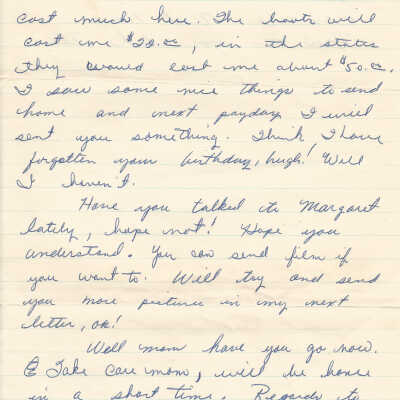 cost much here. The boots will
cost me $20.00, in the states
they would cost me about $50.00.
I saw some nice things to send
home and next payday I will
sent you something. Think I have
forgotten your birthday, hugh! Well
I haven't.
Have you talked to Margaret
lately, hope not! Hope you
understand. You can send film if
you want to. Will try and send
you more picture in my next
letter, ok!
Well mom have you go now.
Take care mom, will be home
in a short time. Regards to